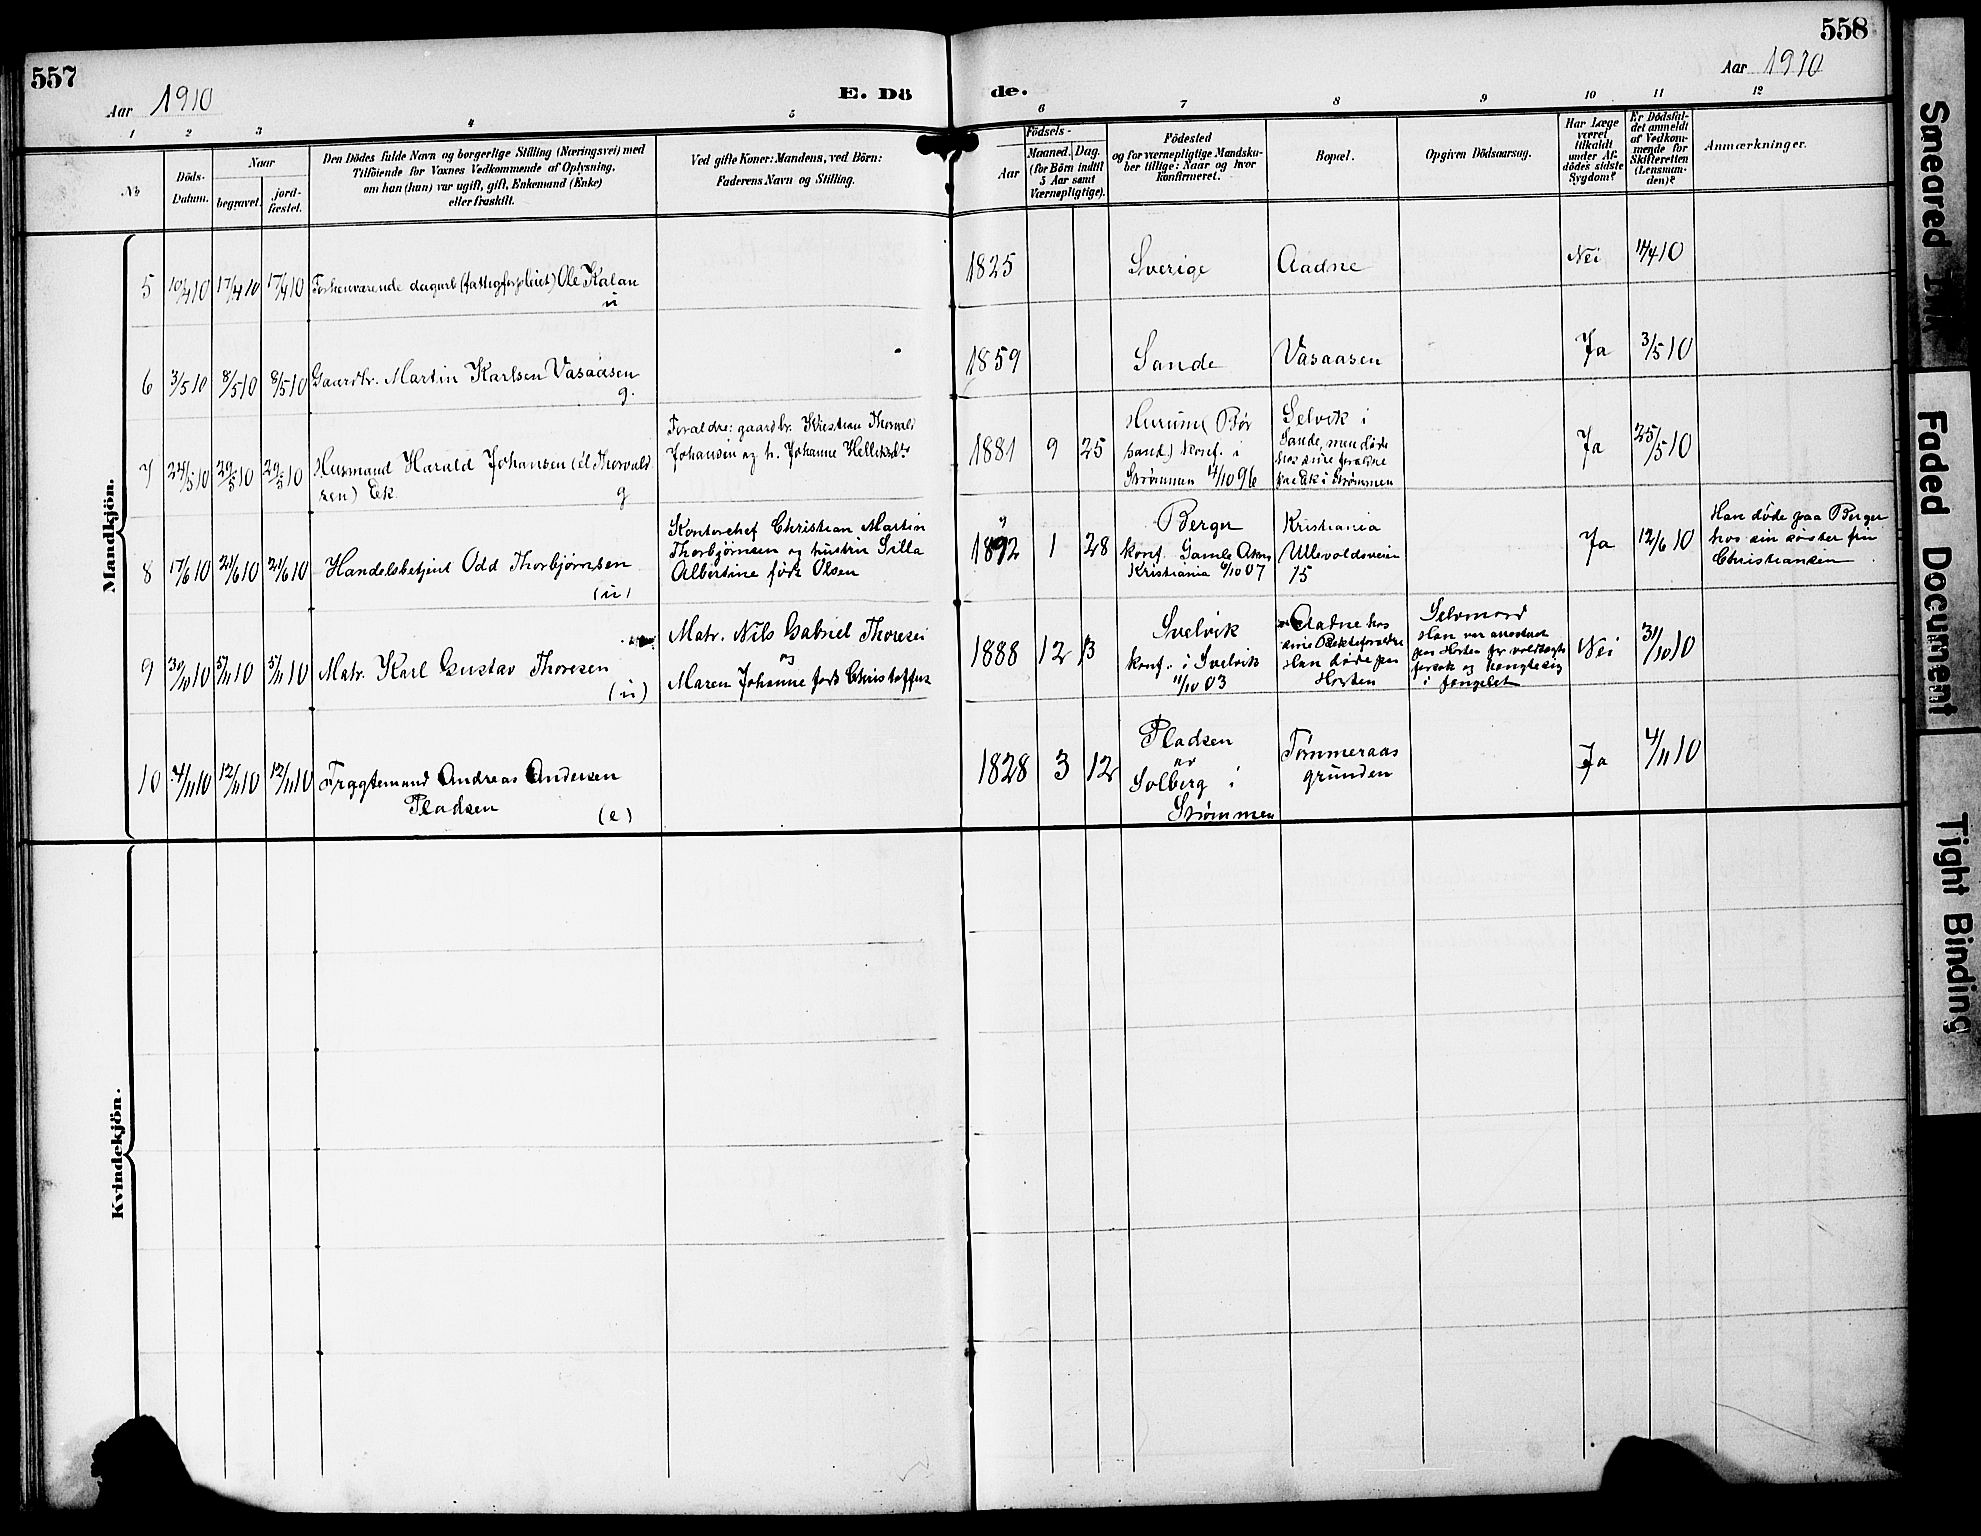 557
Aar 1910
E. Dö
de.
558
Aar 1910
1 2 3 4 5 6 7 8 9 10 11 12
No
Döds-
Datum.
Naar
begravet.
jord-
fæstet.
Den Dödes fulde Navn og borgerlige Stilling (Næringsvei) med
Tilföiende for Voxnes Vedkommende af Oplysning,
om han (hun) var ugift, gift, Enkemand (Enke)
eller fraskilt.
Ved gifte Koner: Mandens, ved Börn:
Faderens Navn og Stilling.
Födsels-
Aar
Maaned. Dag.
(for Börn indtil
5 Aar samt
Værnepligtige).
Födested
og for værnepligtige Mandska-
ber tillige: Naar og hvor
konfirmeret.
Bopæl.
Opgiven Dödsaarsag.
Har Læge
været
tilkaldt
under Af-
dödes sidste
Sygdom?
Er Dödsfal-
det anmeldt
af Vedkom-
mende for
Skifteretten
(Lensman-
den)?
Anmærkninger.
Mandkjön.
5 10/4 10 17/4 10 17/4 10 Forhenværende dagarb (fattigforpleiet) Ole Kalan
u
1825 Sverige Aadne Nei 14/4 10
6 3/5 10 8/5 10 8/5 10 Gaardbr. Martin Karlsen Vasaasen
g.
1859 Sande Vasaasen Ja 3/5 10
7 24/5 10 29/5 10 29/5 10 Husmand Harald Johansen (el Thorvald
sen) Ek
g
Foraldre: gaardbr. Kristian Thorvald
Johansen og h. Johanne
1881 9 25
Hurum (Bør
sand) konf. i
Strømmen 4/10 96
Selvik i
Sande, men døde
hos sine foraldre
paa Ek i Strømmen
Ja 25/5 10
8 17/6 10 21/6 10 21/6 10 Handelsbetjent Odd Thorbjørnsen
(u)
Kontorchef Christian Martin
Thorbjørnsen og hustru Silla
Albertine født Olsen
1892 1 28
Berger
konf. Gamle Akers
Kristiania 6/10 07
Kristiania
Ullevoldsveien
15
Ja 12/6 10
Han døde paa Berger
hos sin søster fru
Christiansen
9 30/10 10 5/11 10 5/11 10 Matr. Karl Gustav Thoresen
(u)
Matr. Nils Gabriel Thoresen
og
Maren Johanne født Christoffers
1888 12 3
Svelvik
konf. i Svelvik
11/10 03
Aadne hos
sine Plekteforaldre
Han døde paa
Horten
Selvmord
Han var arresteret
paa Horten for voldtægts
forsøk og hengte sig
i fængslet
Nei 31/10 10
10 4/11 10 12/11 10 12/11 10 Fraggtemand Andreas Andersen
Pladsen
(e)
1828 3 12
Pladsen
av
Solberg i
Strømmen
Tømmeraas
grunden
Ja 4/11 10
Kvindekjön.
Smeared Ink
Faded Document
Tight Binding